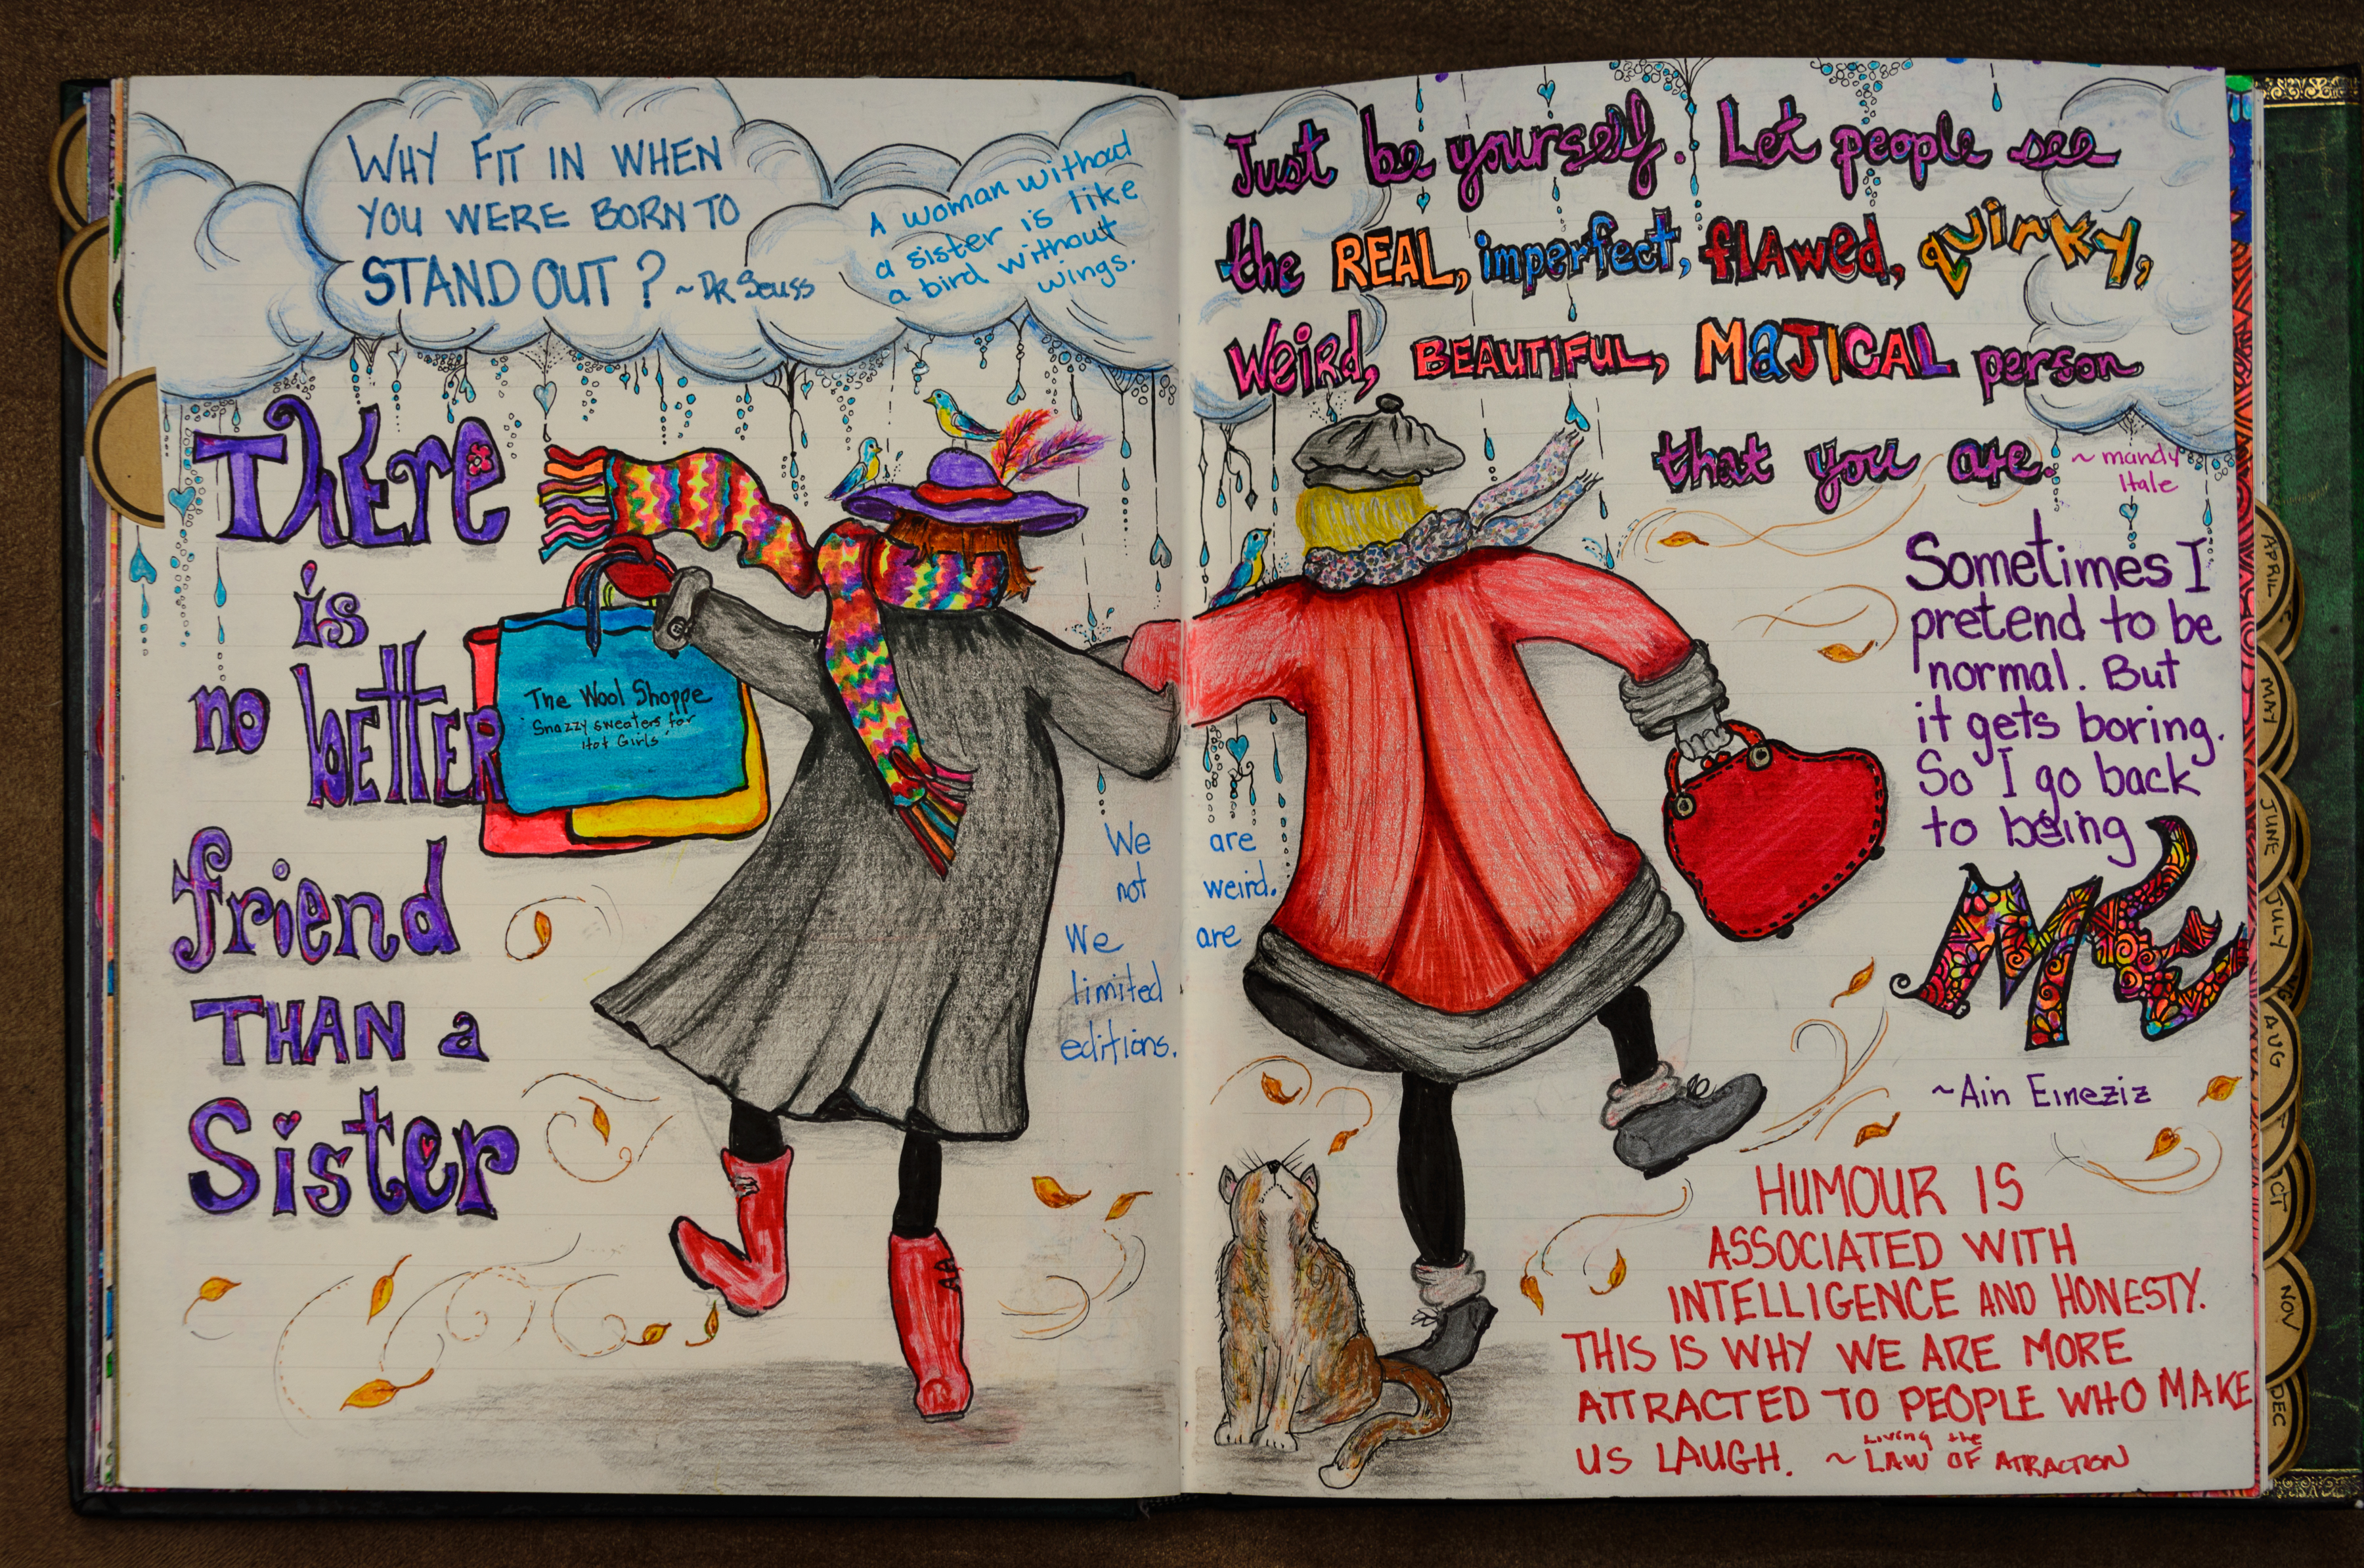 WHY FIT IN WHEN
YOU WERE BORN TO
STAND OUT? ~DR Seuss
A woman without
a sister is like
a bird without
wings.
THERE
is
no better
friend
THAN a
Sister
The Wool Shoppe
"Snazzy sweaters for
Hot Girls"
We are
not weird.
We are
limited
editions.
Just be yourself. Let people see
the REAL, imperfect, flAwed, quirky,
Weird, BEAUTIFUL, MaJICAL person
that you are. ~ mandy
Hale
Sometimes I
pretend to be
normal. But
it gets boring.
So I go back
to being
ME
~Ain Eineziz
HUMOUR IS
ASSOCIATED WITH
INTELLIGENCE AND HONESTY.
THIS IS WHY WE ARE MORE
ATTRACTED TO PEOPLE WHO MAKE
US LAUGH. ~ Living the LAW OF ATRACTION
APRIL
MAY
JUNE
JULY
AUG
CT
NOV
DEC